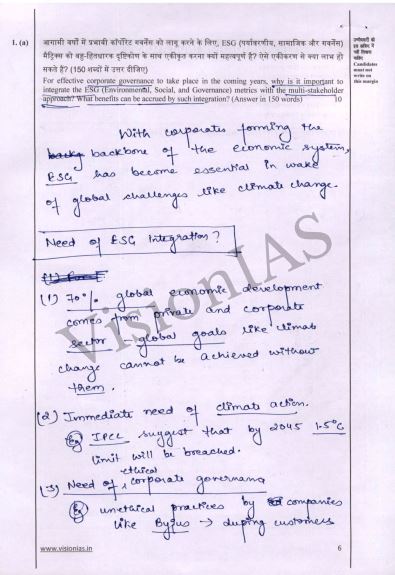 1. (a) आगामी वर्षों में प्रभावी कॉर्पोरेट गवर्नेंस को लागू करने के लिए, ESG (पर्यावरणीय, सामाजिक और गवर्नेंस)
मैट्रिक्स को बहु-हितधारक दृष्टिकोण के साथ एकीकृत करना क्यों महत्वपूर्ण है? ऐसे एकीकरण से क्या लाभ हो
सकते हैं? (150 शब्दों में उत्तर दीजिए)
For effective corporate governance to take place in the coming years, why is it important to
integrate the ESG (Environmental, Social, and Governance) metrics with the multi-stakeholder
approach? What benefits can be accrued by such integration? (Answer in 150 words) 10
उम्मीदवारों को
इस हाशिए में
नहीं लिखना
चाहिए
Candidates
must not
write on
this margin
With corporates forming the
backbone of the economic system,
ESG has become essential in wake
of global challenges like climate change.
Need of ESG Integration?
(1) 70% global economic development
comes from private and corporate
sector – global goals like climat
change cannot be achieved without
them.
(2) Immediate need of climate action.
Eg IPCC suggest that by 2045 1.5°C
limit will be breached.
(3) Need of ethical corporate governang
Eg unethical practices by companies
like Byjus → duping customers
VisionIAS
www.visionias.in
6